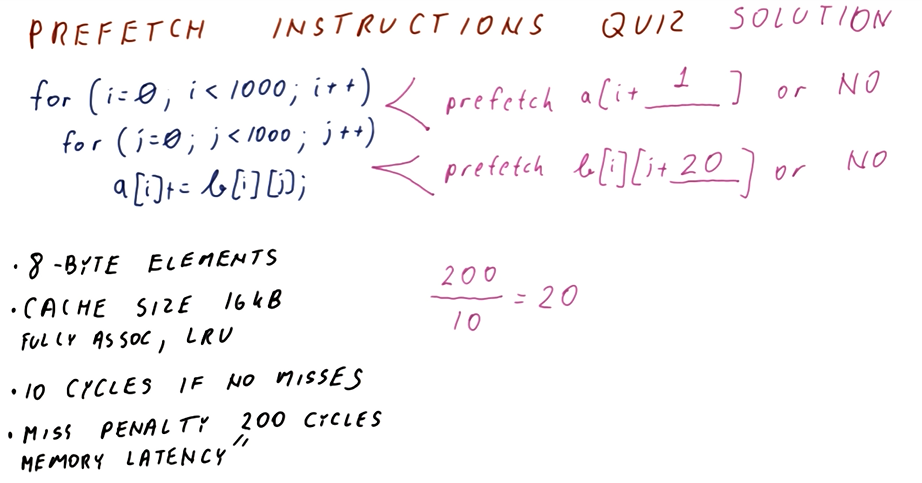 PREFETCH INSTRUCTIONS QUIZ SOLUTION
for (i=0; i<1000; i++)
prefetch a[i+ 1 ] or NO
for (j=0; j<1000; j++)
prefetch b[i][j+ 20 ] or NO
a[i]+= b[i][j];
• 8-BYTE ELEMENTS
• CACHE SIZE 16kB
FULLY ASSOC, LRU
• 10 CYCLES IF NO MISSES
• MISS PENALTY 200 CYCLES
MEMORY LATENCY "
200
10 = 20